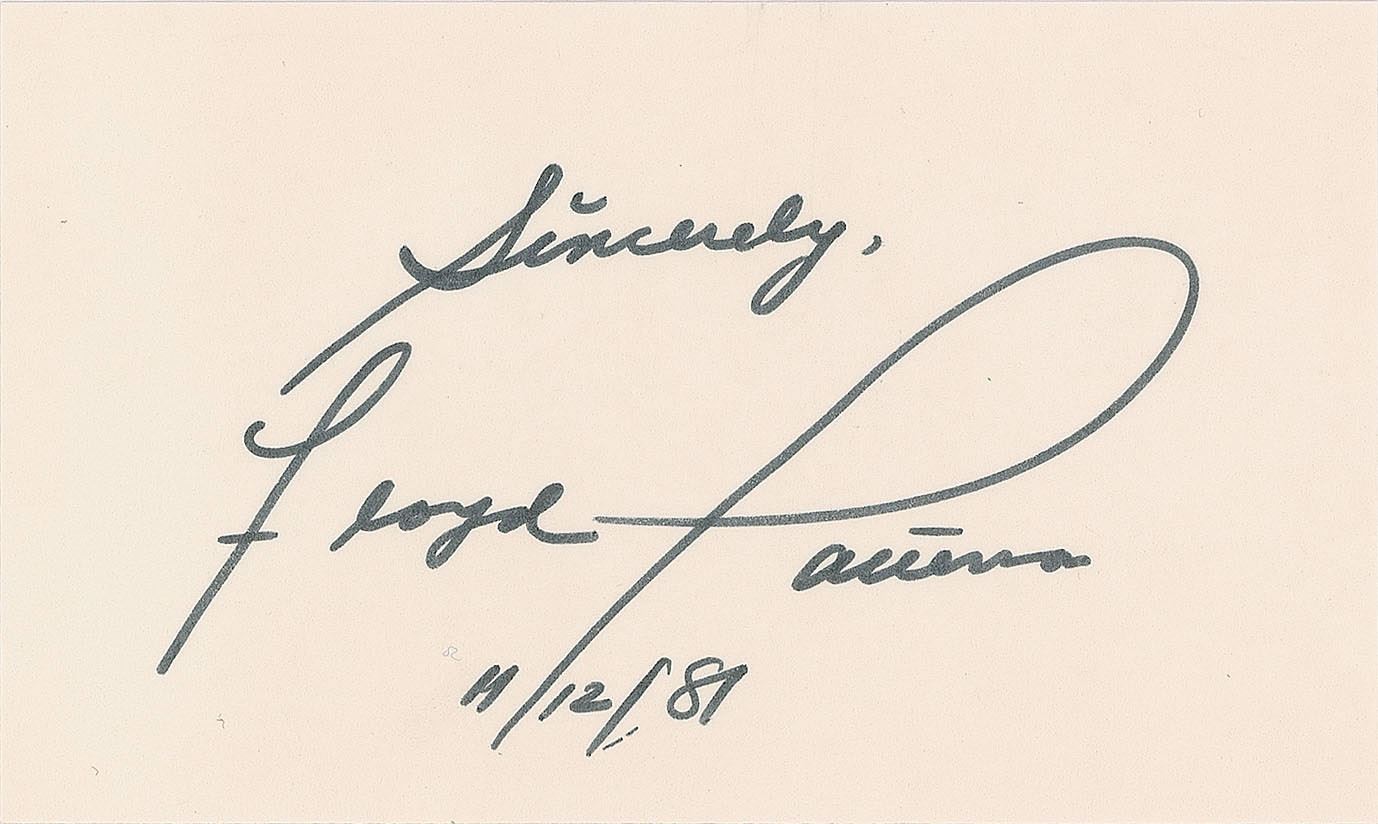 Sincerely,
Floyd Patterson
11/12/81